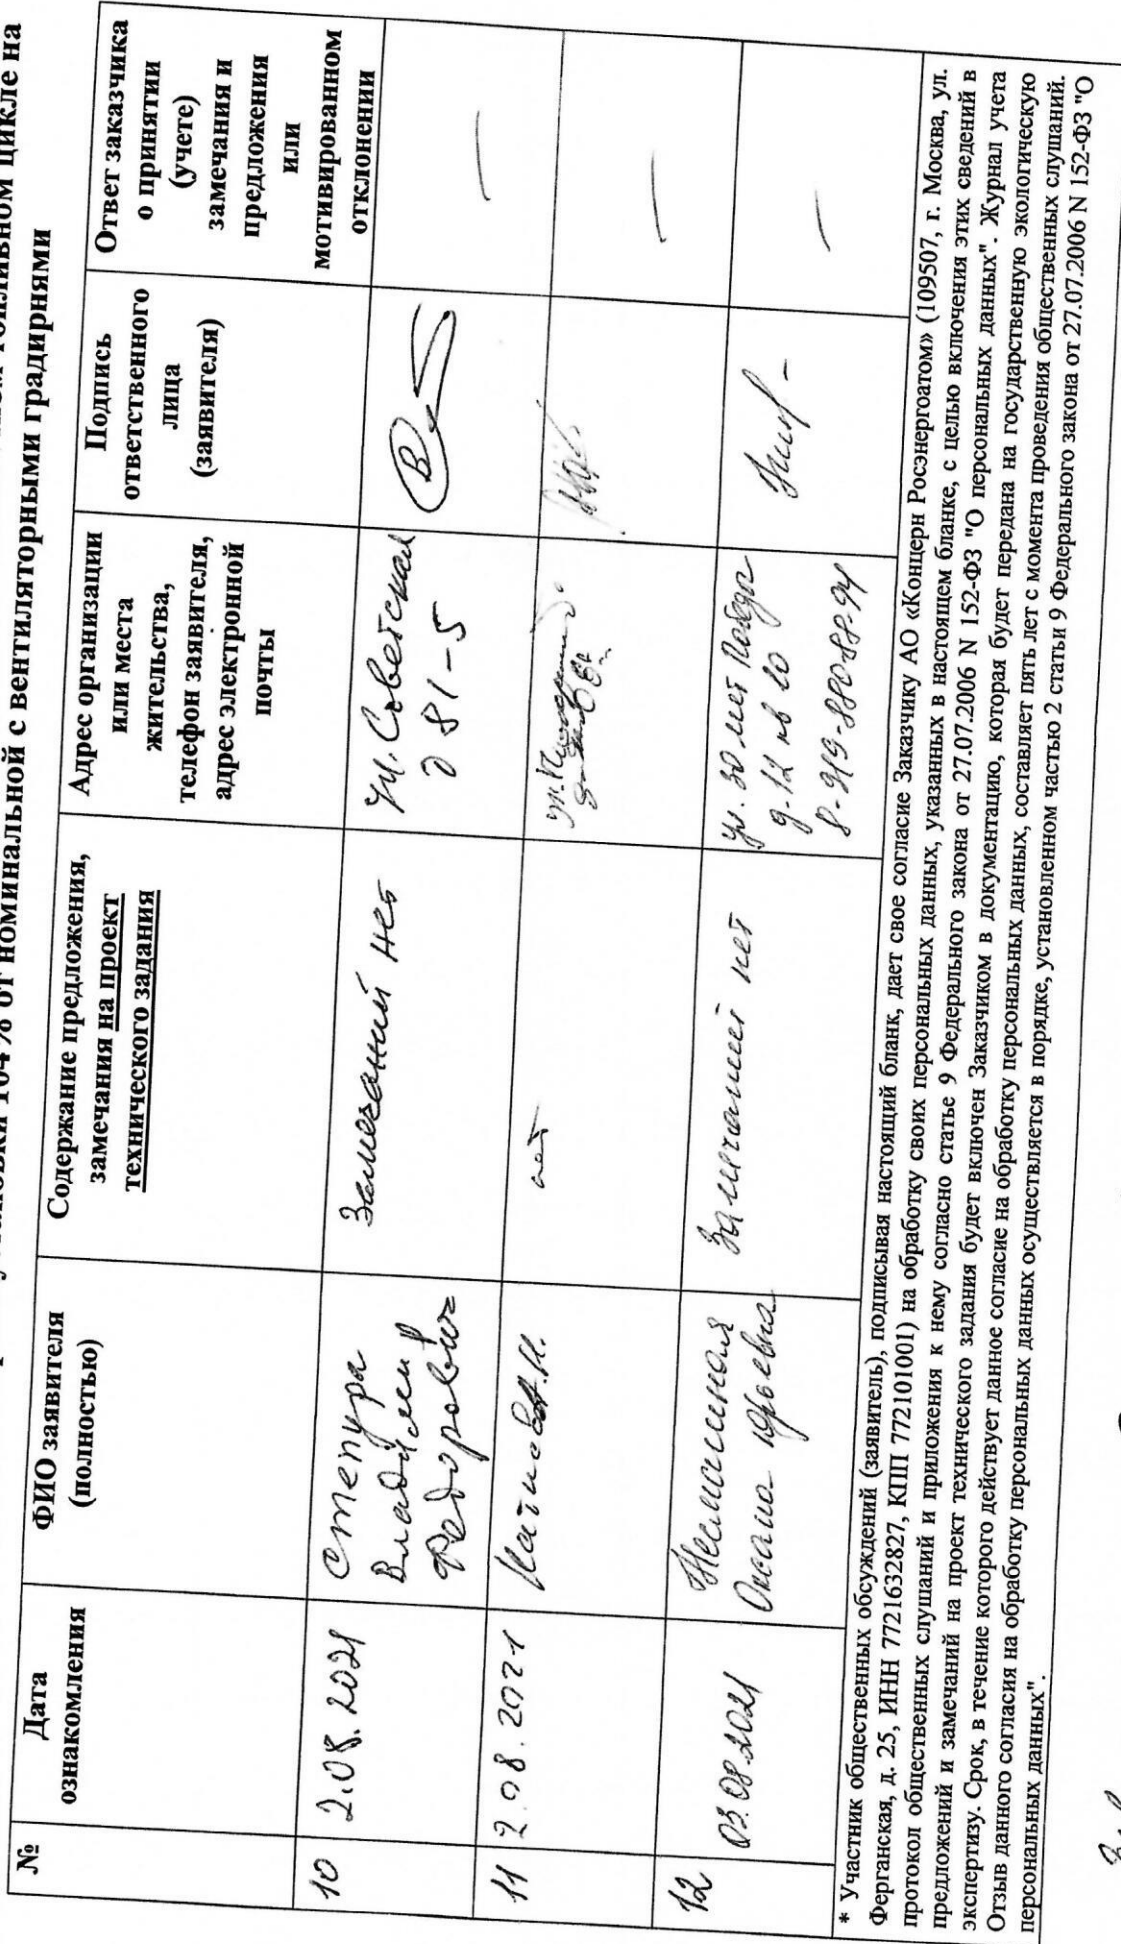 установки 104 % от номинальной с вентиляторными градирнями
топливном цикле на
№
Дата
ознакомления
ФИО заявителя
(полностью)
Содержание предложения,
замечания на проект
технического задания
Адрес организации
или места
жительства,
телефон заявителя,
адрес электронной
почты
Подпись
ответственного
лица
(заявителя)
Ответ заказчика
о принятии
(учете)
замечания и
предложения
или
мотивированном
отклонении
10
2.08.2021
Степура
Владимир
Федорович
Замечаний нет
ул. Советская
д 81-5
—
11
2.08.2021
нет
—
12
03.08.2021
Оксана Юрьевна
Замечаний нет
ул. 30 лет Победы
д-12 кв 20
8-919-880-88-94
—
* Участник общественных обсуждений (заявитель), подписывая настоящий бланк, дает свое согласие Заказчику АО «Концерн Росэнергоатом» (109507, г. Москва, ул.
Ферганская, д. 25, ИНН 7721632827, КПП 772101001) на обработку своих персональных данных, указанных в настоящем бланке, с целью включения этих сведений в
протокол общественных слушаний и приложения к нему согласно статье 9 Федерального закона от 27.07.2006 N 152-ФЗ "О персональных данных". Журнал учета
предложений и замечаний на проект технического задания будет включен Заказчиком в документацию, которая будет передана на государственную экологическую
экспертизу. Срок, в течение которого действует данное согласие на обработку персональных данных, составляет пять лет с момента проведения общественных слушаний.
Отзыв данного согласия на обработку персональных данных осуществляется в порядке, установленном частью 2 статьи 9 Федерального закона от 27.07.2006 N 152-ФЗ "О
персональных данных".